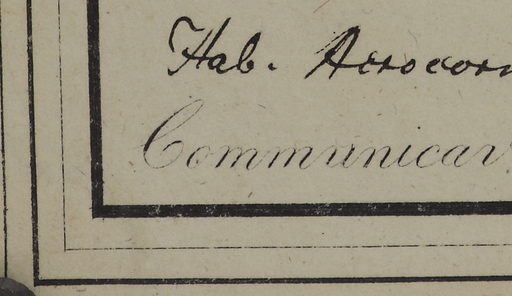 Hab. Acrocorin
Communicav